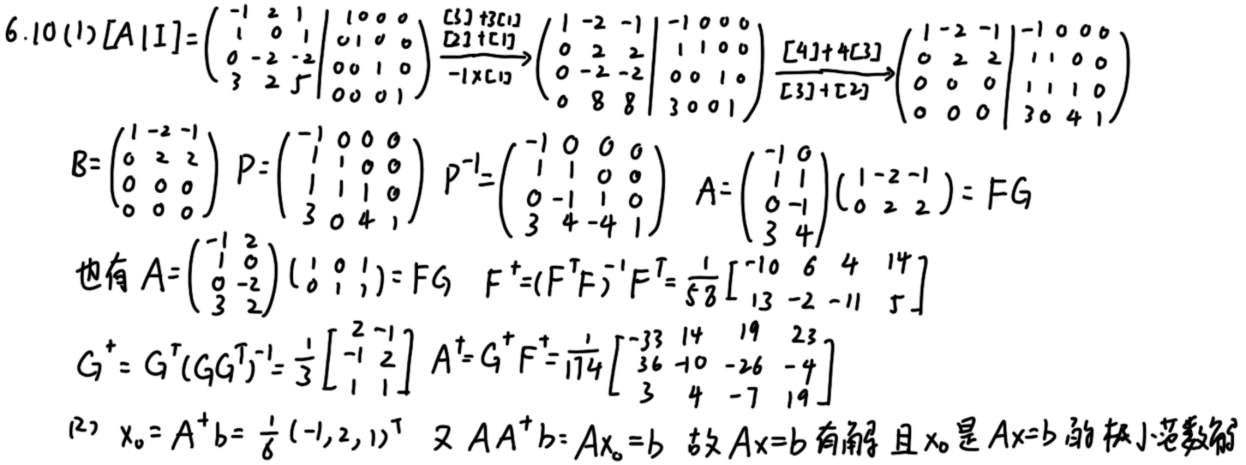 6.10(1) [A|I] = ( -1 2 1 | 1 0 0 0 ; 1 0 1 | 0 1 0 0 ; 0 -2 -2 | 0 0 1 0 ; 3 2 5 | 0 0 0 1 ) →([3]+3[1] [2]+[1] / -1×[1]) ( 1 -2 -1 | -1 0 0 0 ; 0 2 2 | 1 1 0 0 ; 0 -2 -2 | 0 0 1 0 ; 0 8 8 | 3 0 0 1 ) →([4]+4[3] / [3]+[2]) ( 1 -2 -1 | -1 0 0 0 ; 0 2 2 | 1 1 0 0 ; 0 0 0 | 1 1 1 0 ; 0 0 0 | 3 0 4 1 )
B = ( 1 -2 -1 ; 0 2 2 ; 0 0 0 ; 0 0 0 ) P = ( -1 0 0 0 ; 1 1 0 0 ; 1 1 1 0 ; 3 0 4 1 ) P⁻¹ = ( -1 0 0 0 ; 1 1 0 0 ; 0 -1 1 0 ; 3 4 -4 1 ) A = ( -1 0 ; 1 1 ; 0 -1 ; 3 4 ) ( 1 -2 -1 ; 0 2 2 ) = FG
也有 A = ( -1 2 ; 1 0 ; 0 -2 ; 3 2 ) ( 1 0 1 ; 0 1 1 ) = FG F⁺ = (FᵀF)⁻¹Fᵀ = 1/58 [ -10 6 4 14 ; 13 -2 -11 5 ]
G⁺ = Gᵀ(GGᵀ)⁻¹ = 1/3 [ 2 -1 ; -1 2 ; 1 1 ] A⁺ = G⁺F⁺ = 1/174 [ -33 14 19 23 ; 36 -10 -26 -4 ; 3 4 -7 19 ]
(2) x₀ = A⁺b = 1/6 (-1, 2, 1)ᵀ 又 AA⁺b = Ax₀ = b 故 Ax=b 有解 且 x₀ 是 Ax=b 的极小范数解